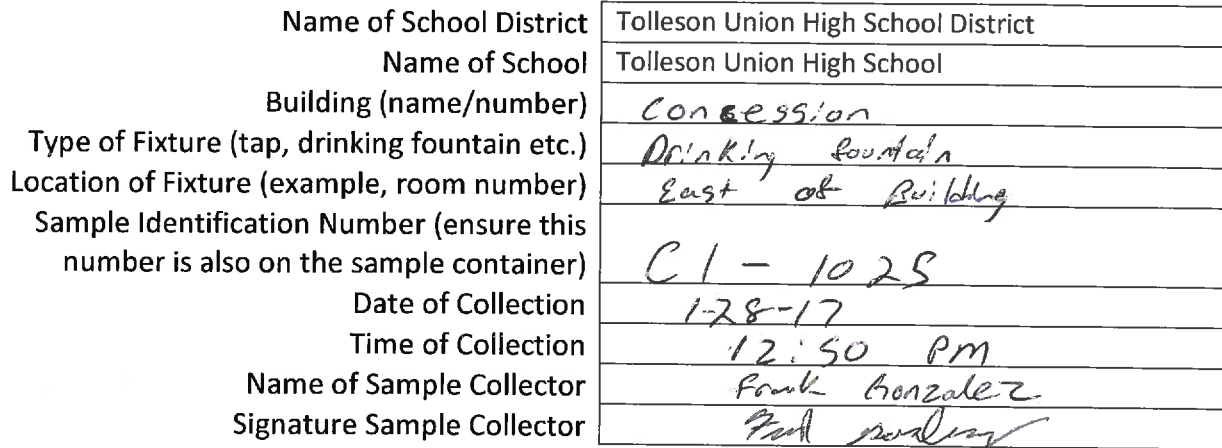 Name of School District Tolleson Union High School District
Name of School Tolleson Union High School
Building (name/number) Concession
Type of Fixture (tap, drinking fountain etc.) Drinking fountain
Location of Fixture (example, room number) East of Building
Sample Identification Number (ensure this
number is also on the sample container) C1 - 102S
Date of Collection 1-28-17
Time of Collection 12:50 PM
Name of Sample Collector Frank Gonzalez
Signature Sample Collector